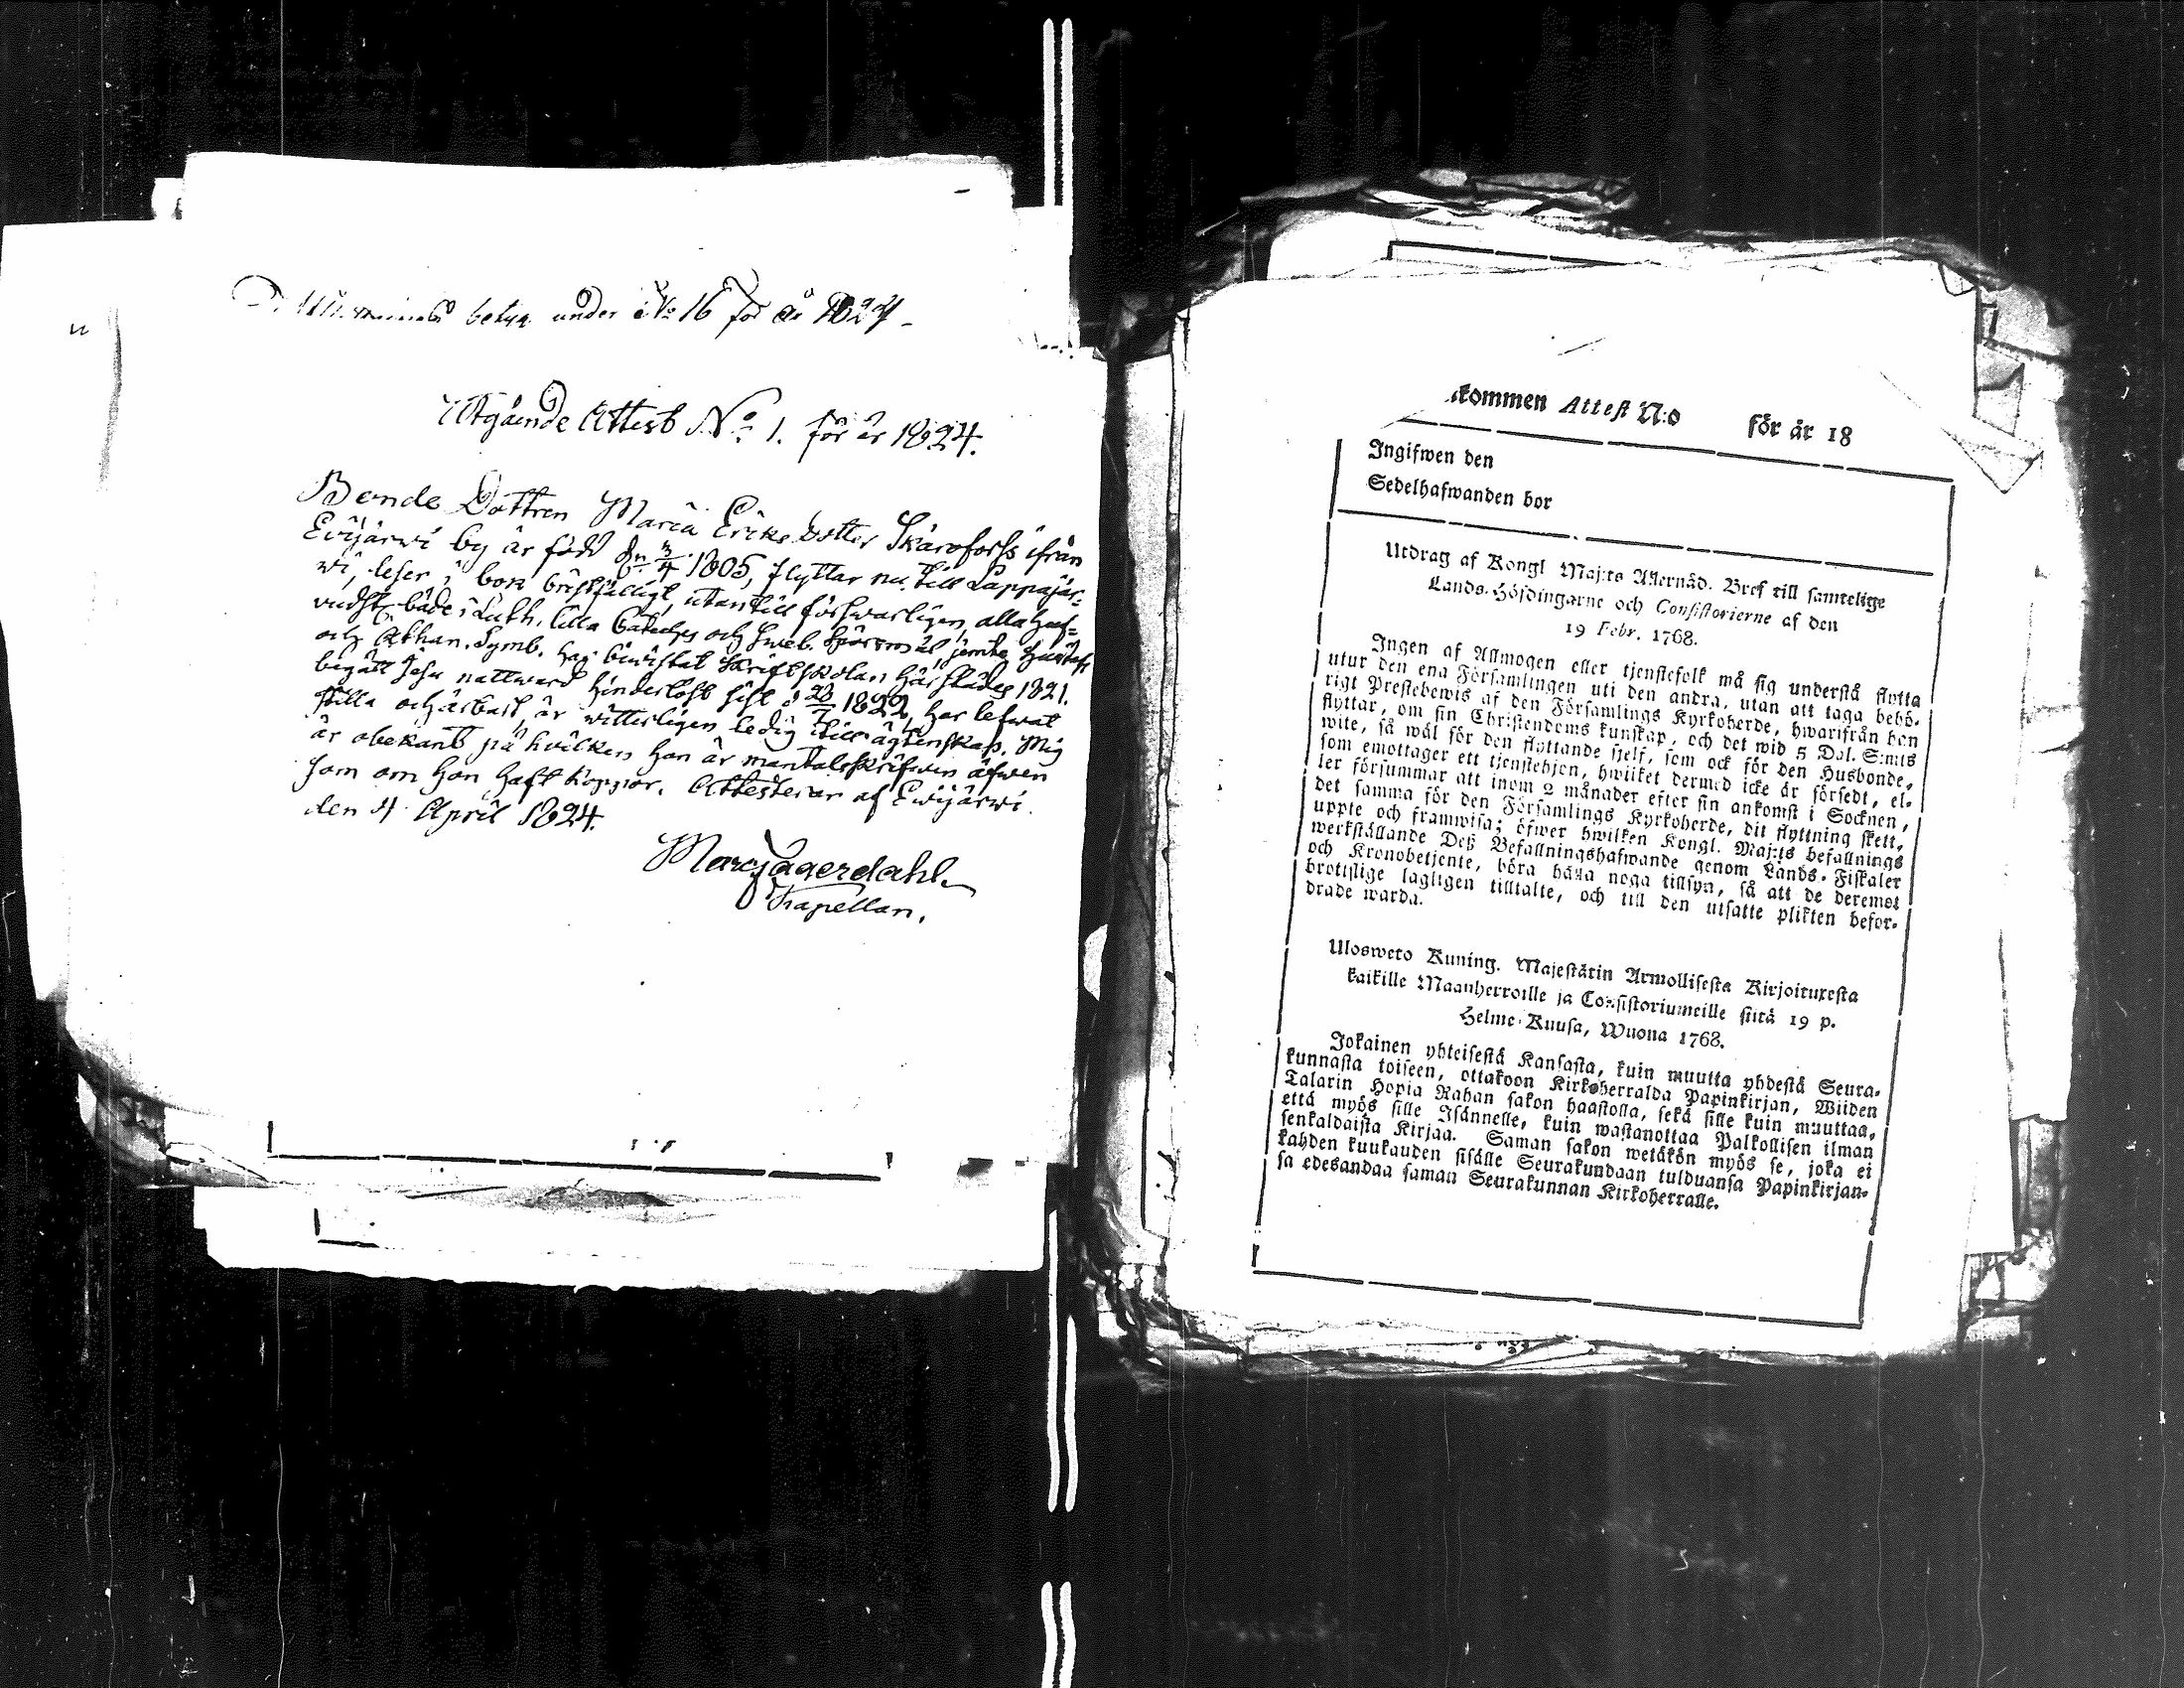 betyg under No 16 för år 1824
Utgående Attest No 1. för år 1824.
Bonde Dottren Maria Eriks dotter Skaroforss ifrån
Evijärwi by är född dn 3/4 1805, flyttar nu till Lappajär-
wi, leser i bok beskjälligt, utantill förswarligen, alla huf-
vudst. både i Luth. lilla Cateches och Sweb. spörsmål, jemte Hustafl.
och Athan. Symb. har biwistat Skriftskolan härstädes 1821.
begått Jesu nattward hinderlöst sist d 28/7 1822, har lefwat
stilla och ärbart, är witterligen ledig till ägtenskap. Mig
är obekant på hvilken hon är mantalsskrifwen äfwen
som om hon haft koppor. Attesterar af Ewijärwi
den 4 April 1824.
Marc Jagerdahl
Kapellan.
kommen Attest N:o för år 18
Ingifwen den
Sedelhafwanden bor
Utdrag af Kongl Maj:ts Allernåd. Bref till samtelige
Lands-Höfdingarne och Consistorierne af den
19 Febr. 1768.
Ingen af Allmogen eller tjenstefolk må sig understå flytta
utur den ena Församlingen uti den andra, utan att taga behö-
rigt Prestebewis af den Församlings Kyrkoherde, hwarifrån hon
flyttar, om sin Christendoms kunskap, och det wid 5 Dal. S:mts
wite, så wäl för den flyttande sjelf, som ock för den Husbonde,
som emottager ett tjenstehjon, hwilket dermed icke är försedt, el-
ler försummar att inom 2 månader efter sin ankomst i Socknen,
det samma för den Församlings Kyrkoherde, dit flyttning skett,
uppte och framwisa; öfwer hwilken Kongl. Maj:ts befallnings
werkställande Deß Befallningshafwande genom Lands-Fiskaler
och Kronobetjente, böra hålla noga tillsyn, så att de deremot
brottslige lagligen tilltalte, och till den utsatte plikten befor-
drade warda.
Ulosweto Kuning. Majestätin Armollisesta Kirjoituxesta
kaikille Maanherroille ja Consistoriumeille siitä 19 p.
Helme-Kuusa, Wuona 1768.
Jokainen yhteisestä Kansasta, kuin muutta yhdestä Seura-
kunnasta toiseen, ottakoon Kirkoherralda Papinkirjan, Wiiden
Talarin Hopia Rahan sakon haastolla, sekä sille kuin muuttaa,
että myös sille Isännelle, kuin wastanottaa Palkollisen ilman
senkaldaista Kirjaa. Saman sakon wetäkön myös se, joka ei
kahden kuukauden sisälle Seurakundaan tulduansa Papinkirjan-
sa edesandaa saman Seurakunnan Kirkoherralle.